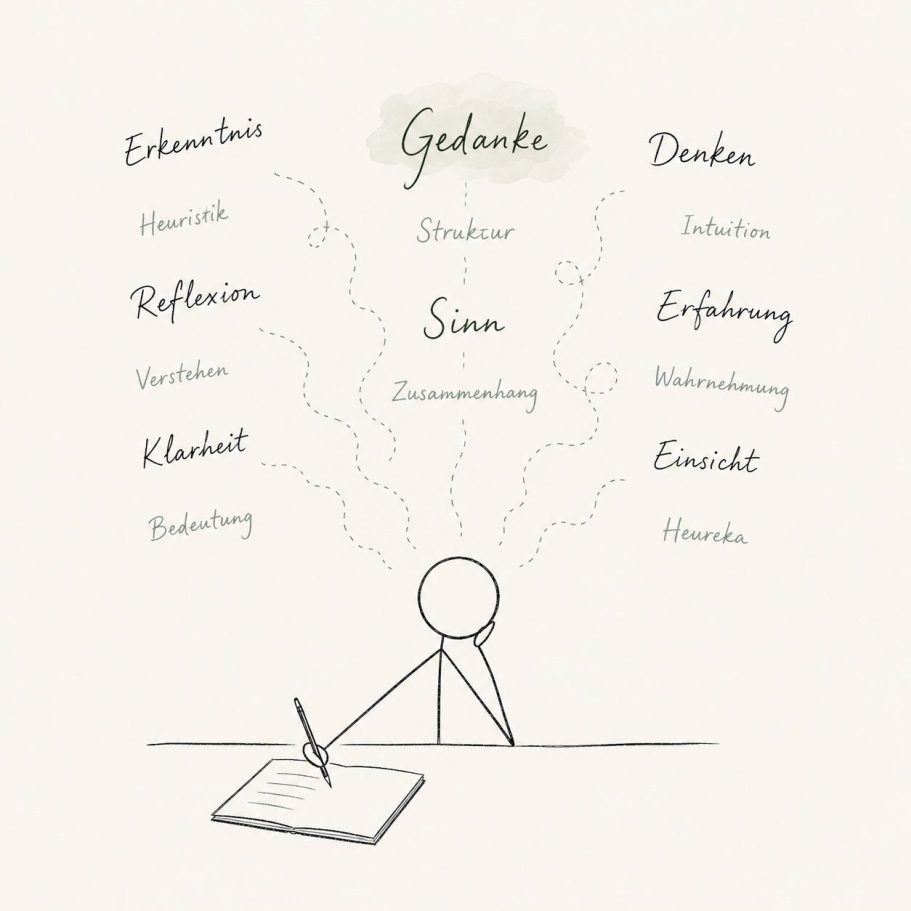 Erkenntnis
Heuristik
Reflexion
Verstehen
Klarheit
Bedeutung
Gedanke
Struktur
Sinn
Zusammenhang
Denken
Intuition
Erfahrung
Wahrnehmung
Einsicht
Heureka